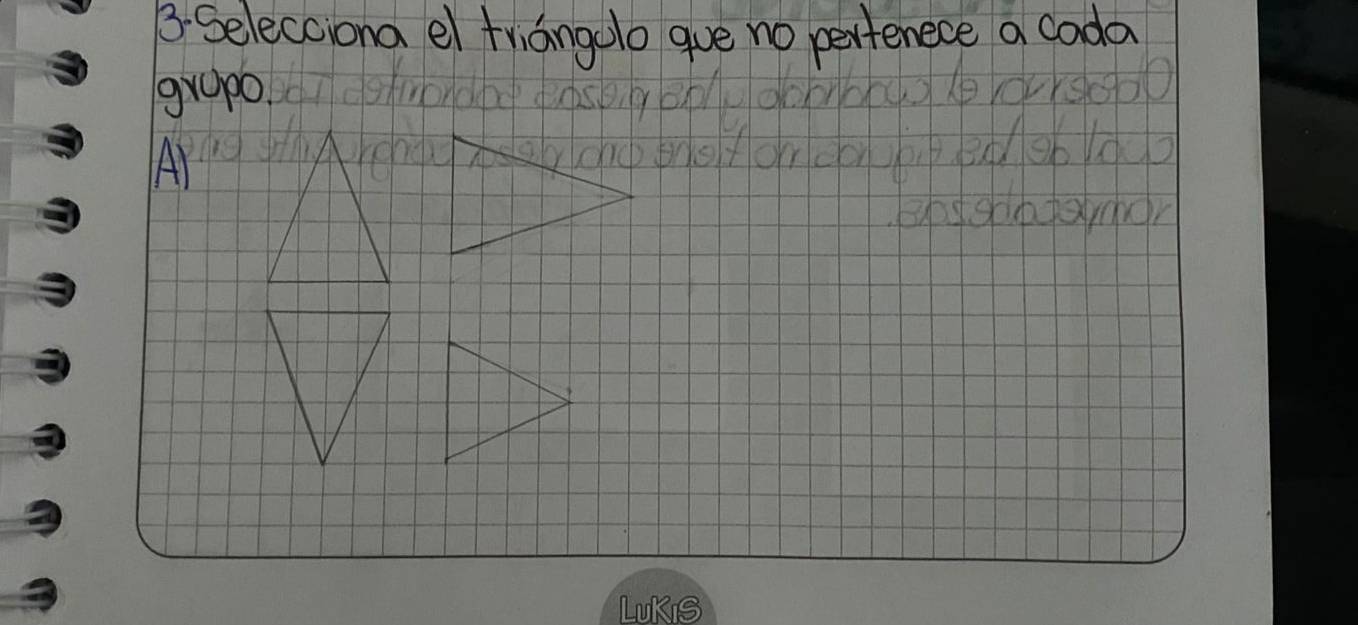 3. Selecciona el triángulo que no pertenece a cada
grupo.
A)
LUKIS